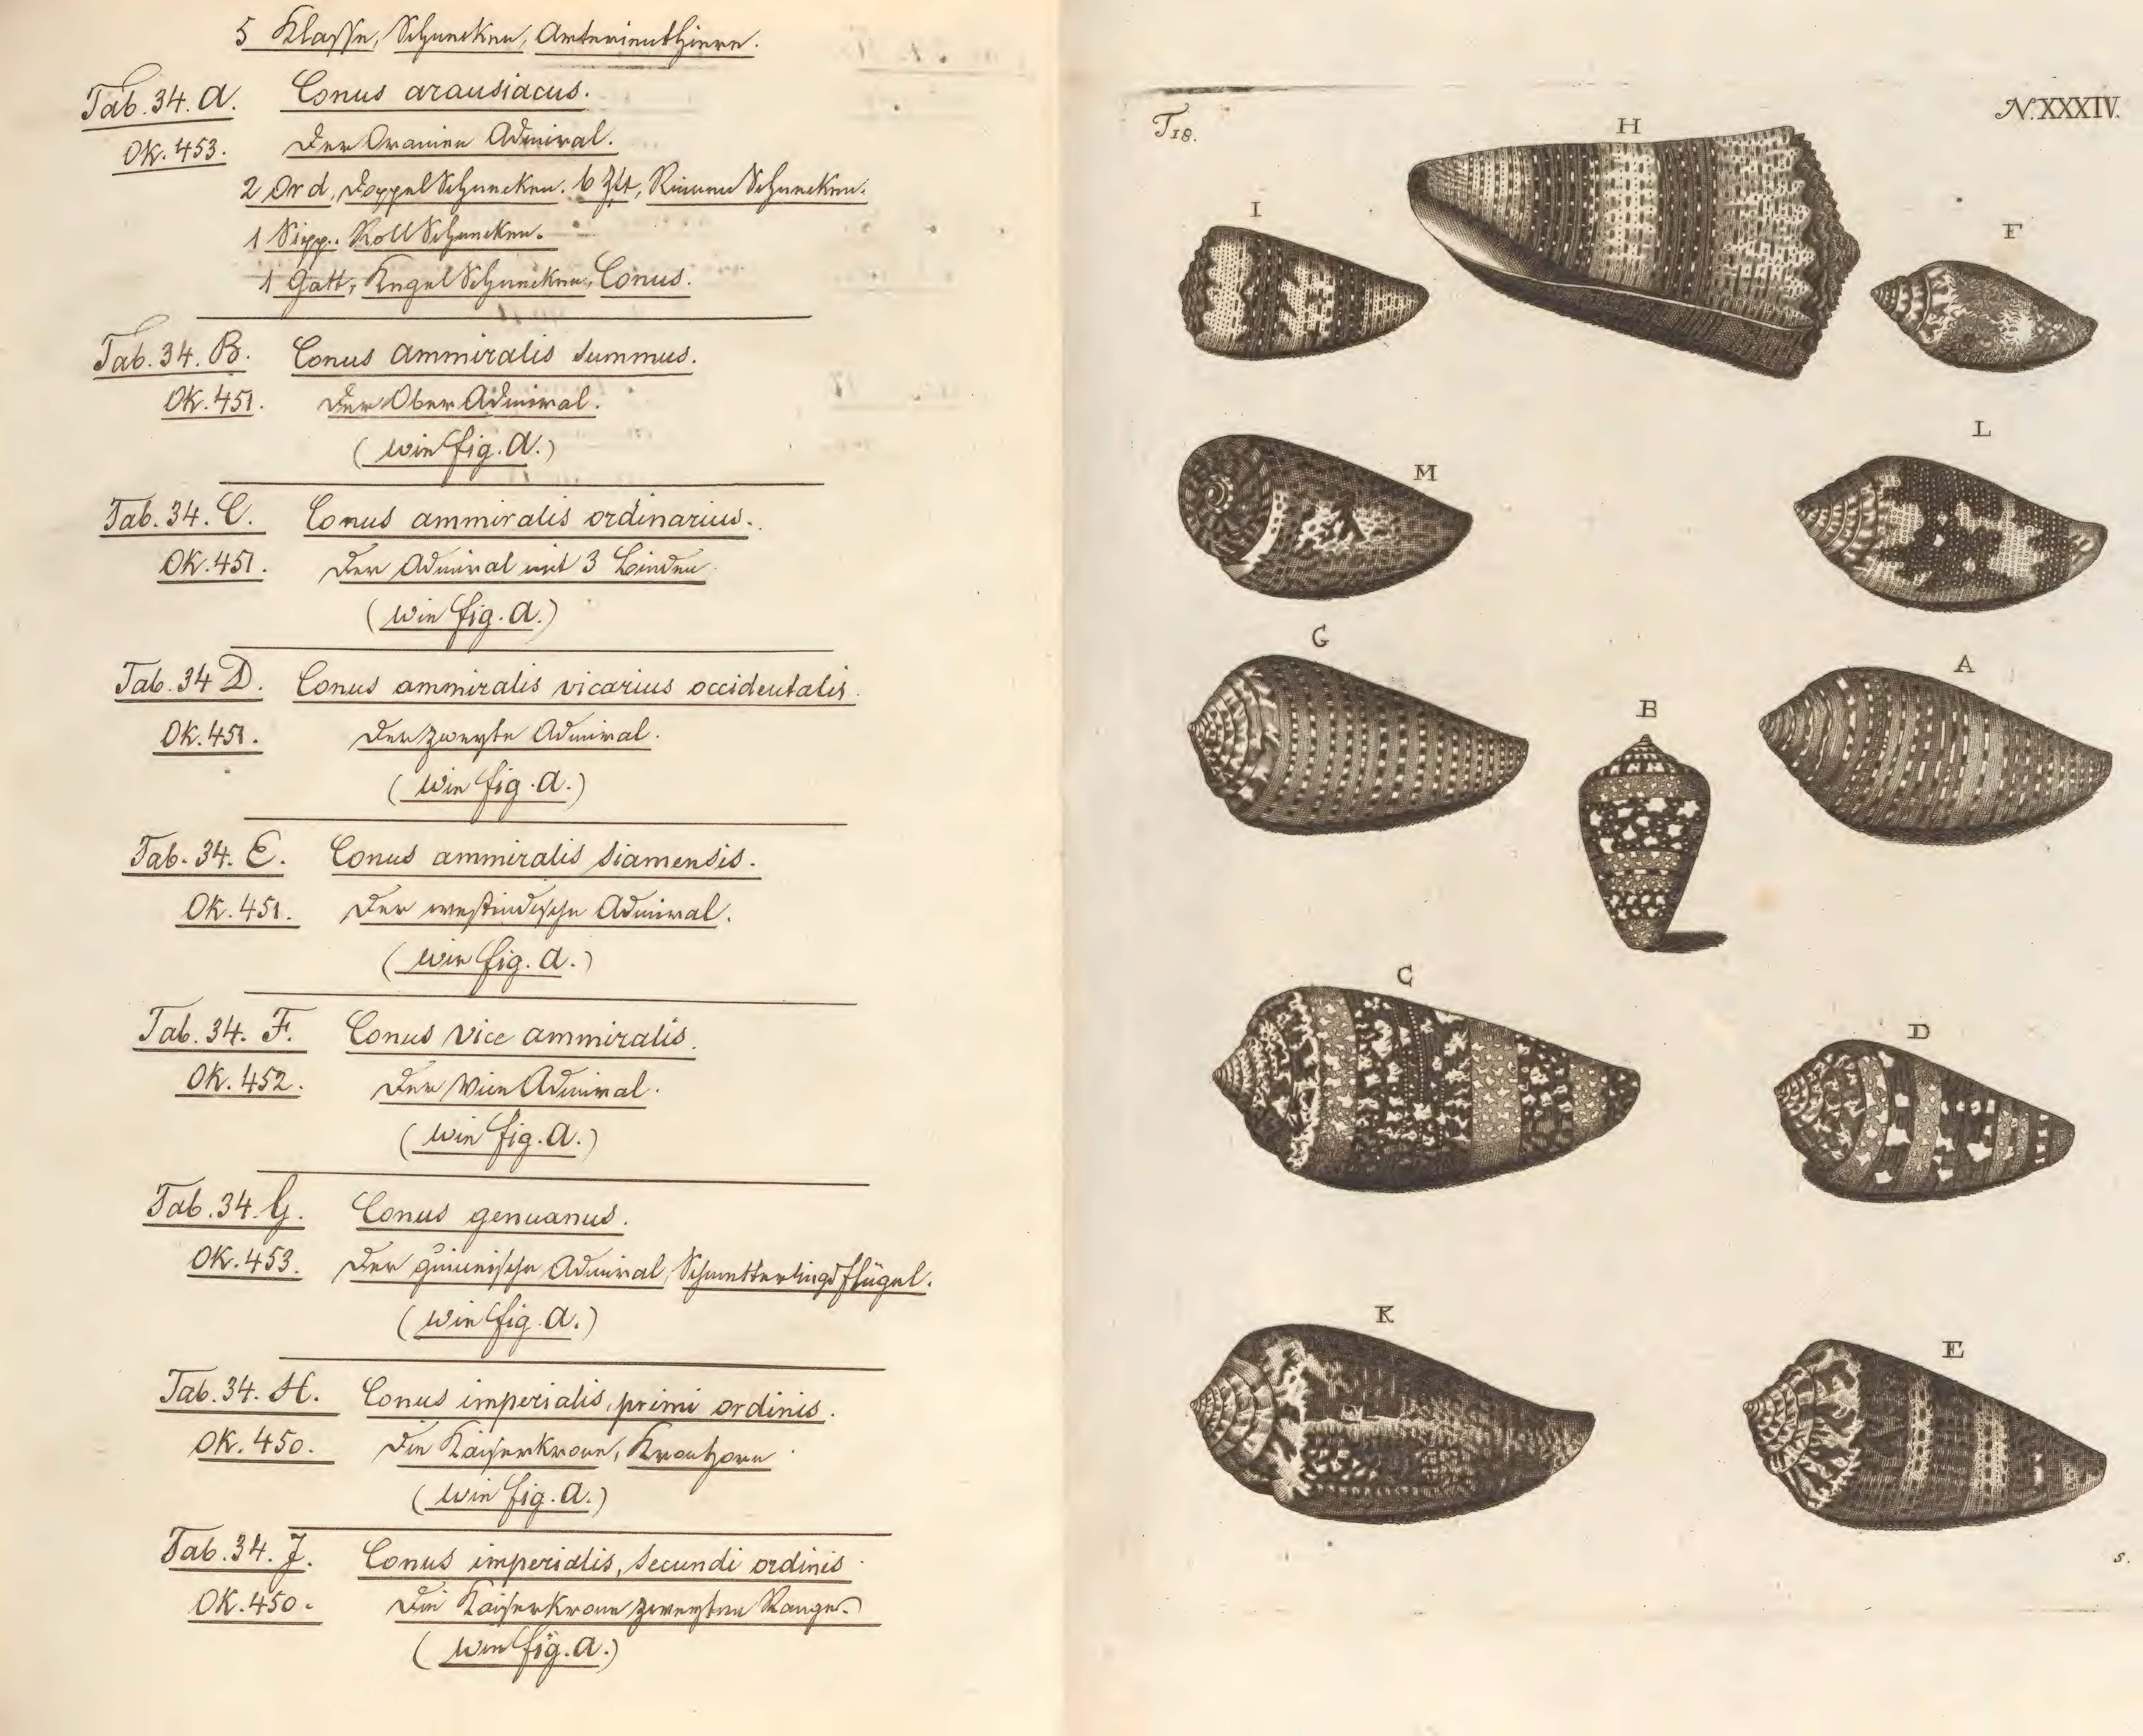 5 Klasse, Schnecken, Arterienthiere.
Tab. 34. A. Conus arausiacus.
Ok. 453. Der Oranien Admiral.
2 Ord, Doppel Schnecken. 6 Zft, Rinnen Schnecken.
1 Sipp. Roll Schnecken.
1 Gatt, Kegel Schnecken, Conus.
Tab. 34. B. Conus ammiralis summus.
Ok. 451. Der Ober Admiral.
(wie fig. A.)
Tab. 34. C. Conus ammiralis ordinarius.
Ok. 451. Der Admiral mit 3 Binden
(wie fig. A.)
Tab. 34 D. Conus ammiralis vicarius occidentalis.
Ok. 451. Der zweyte Admiral.
(wie fig. A.)
Tab. 34. E. Conus ammiralis siamensis.
Ok. 451. Der westindische Admiral.
(wie fig. A.)
Tab. 34. F. Conus Vice ammiralis.
Ok. 452. Der Vice Admiral.
(wie fig. A.)
Tab. 34. G. Conus genuanus.
Ok. 453. Der guineische Admiral, Schmetterlingsflügel.
(wie fig. A.)
Tab. 34. H. Conus imperialis, primi ordinis.
Ok. 450. Die Kaiserkrone, Kronhorn
(wie fig. A.)
Tab. 34. J. Conus imperialis, secundi ordinis
Ok. 450. Die Kaiserkrone zweyten Ranges
(wie fig. A.)
T18.
N. XXXIV.
H
I
F
L
M
G
A
B
C
D
K
E
s.